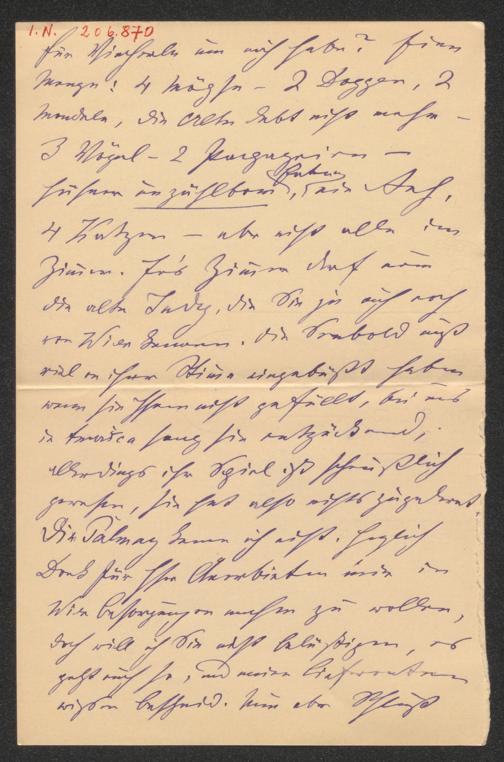 I.N. 206.870
für Viecherln um mich habe? Eine
Menge: 4 Möpse – 2 Doggen, 2
die Alte lebt nicht mehr –
3 Vögel – 2 Papageien –
Hühner unzählbar, Tauben, ein Reh,
4 Katzen – aber nicht alle im
Zimmer. In's Zimmer darf nur
die alte Judy, die Sie ja auch noch
von Wien kennen. Die Senbold muß
viel an ihrer Stimme eingebüßt haben
wenn sie Ihnen nicht gefällt, bei uns
in Amerika sang sie entzückend,
allerdings ihr Spiel ist scheußlich
gewesen, sie hat also nichts zugelernt.
Die Palmay kenne ich nicht. Herzlich
Dank für Ihr Anerbieten mir in
Wien Besorgungen machen zu wollen,
doch will ich Sie nicht belästigen, es
geht auch so, und meine Lieferanten
wissen Bescheid. Nun aber Schluß